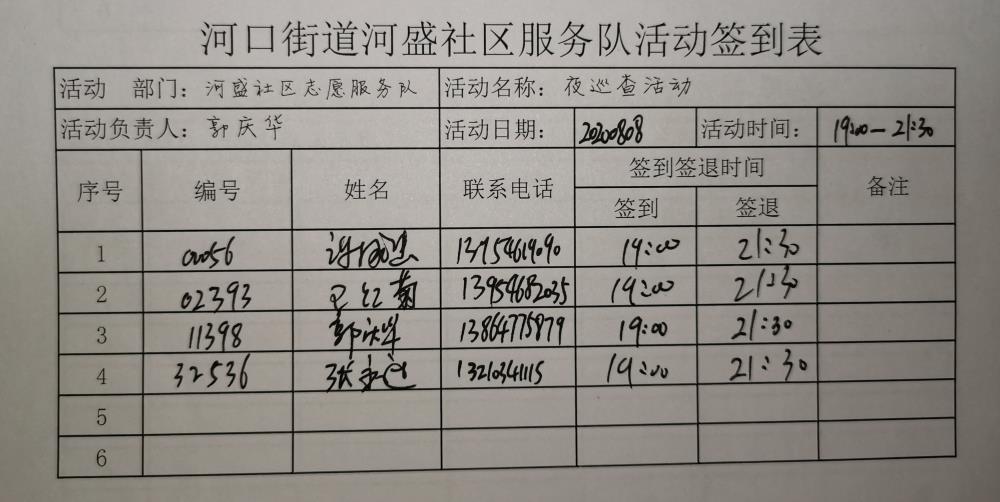 河口街道河盛社区服务队活动签到表
活动 部门：河盛社区志愿服务队 活动名称：夜巡查活动
活动负责人：郭庆华 活动日期：20200808 活动时间：19:00—21:30
序号 编号 姓名 联系电话 签到签退时间 备注
签到 签退
1 00056 13954619090 19:00 21:30
2 02393 红菊 13954682035 19:00 21:30
3 11398 郭庆华 13864775879 19:00 21:30
4 32536 张 13210341115 19:00 21:30
5
6